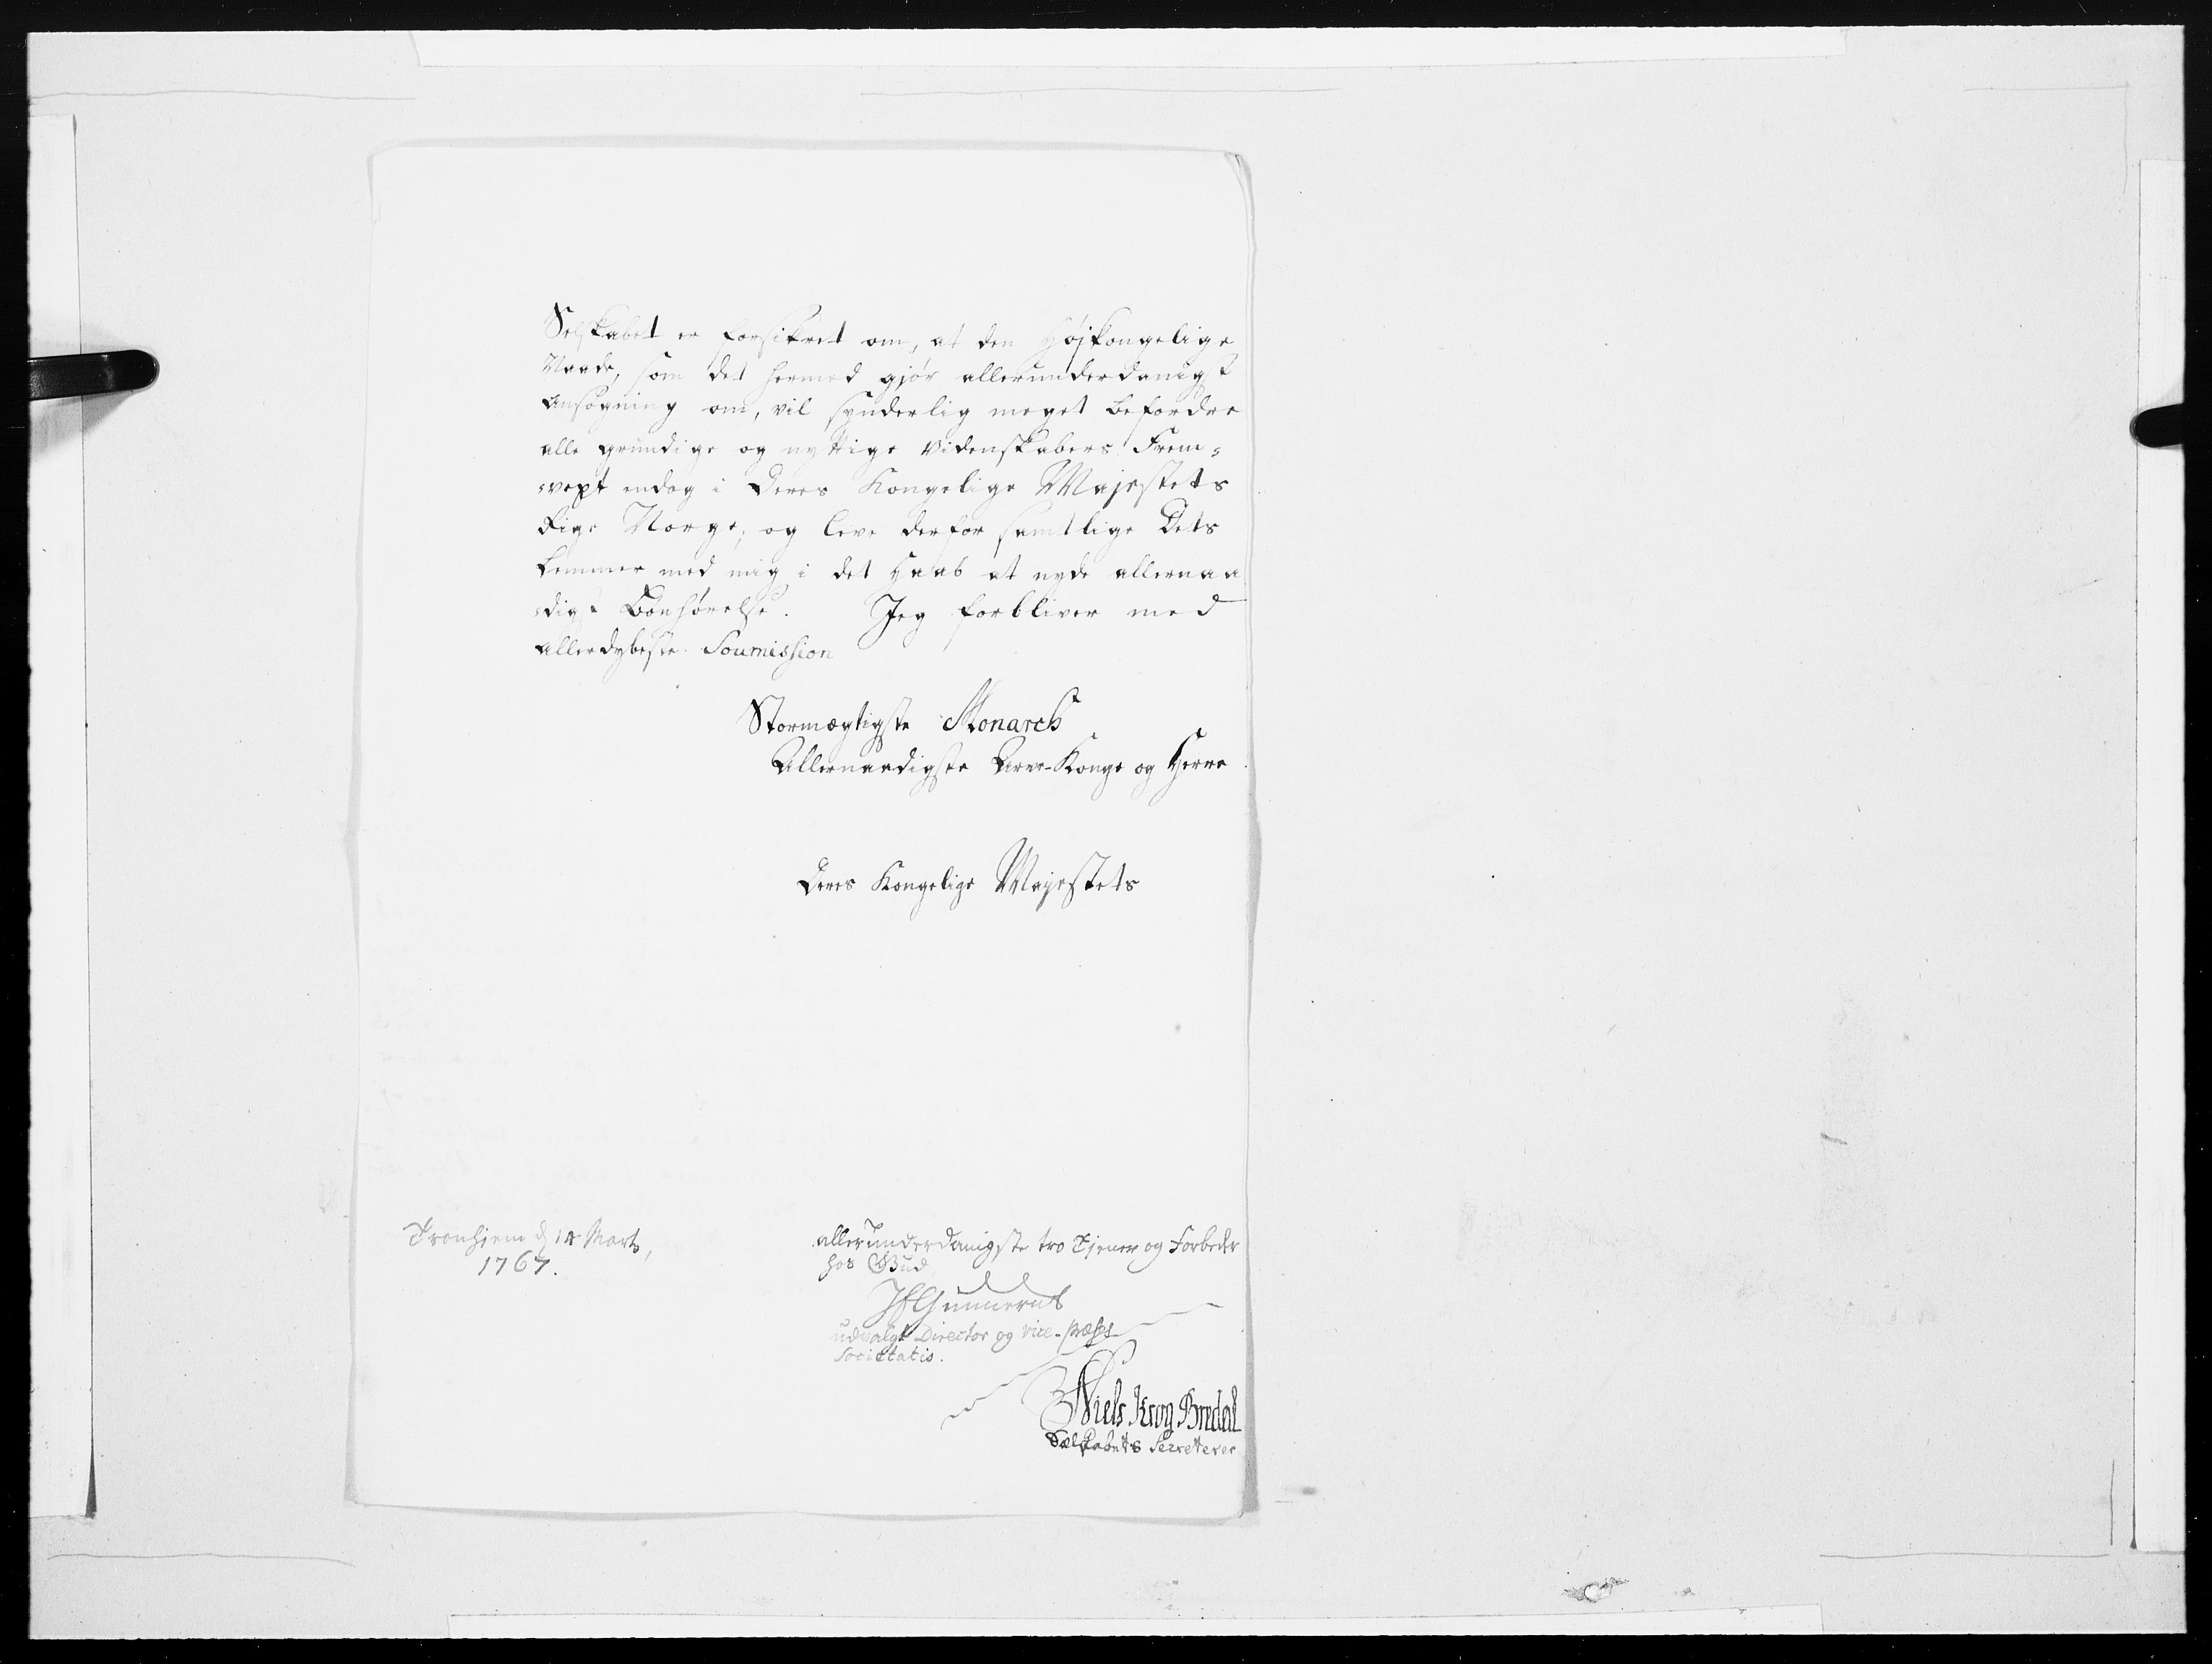 Selskabet er forsikret om, at den Højkongelige
Naade, som det hermed gjør allerunderdanigst
Ansøgning om, vil synderlig meget befordre
alle grundige og nyttige Videnskabers Frem-
-vext endog i Deres Kongelige Majestets
Rige Norge; og leve derfor samtlige Dets
Lemmer med mig i det Haab at nyde allernaa
-digst Bønhørelse. Jeg forbliver med
allerdybeste Soumission
Stormægtigste Monarch
Allernaadigste Arve-Konge og Herre
Deres Kongelige Majestets
Tronhiem d. 14 Marts,
1767.
allerunderdanigste tro Tjener og Forbeder
hos Gud
JEGunnerus
udvalgt Director og vice-præses
Societatis.
Niels Krog Bredal
Selskabets Secreterer